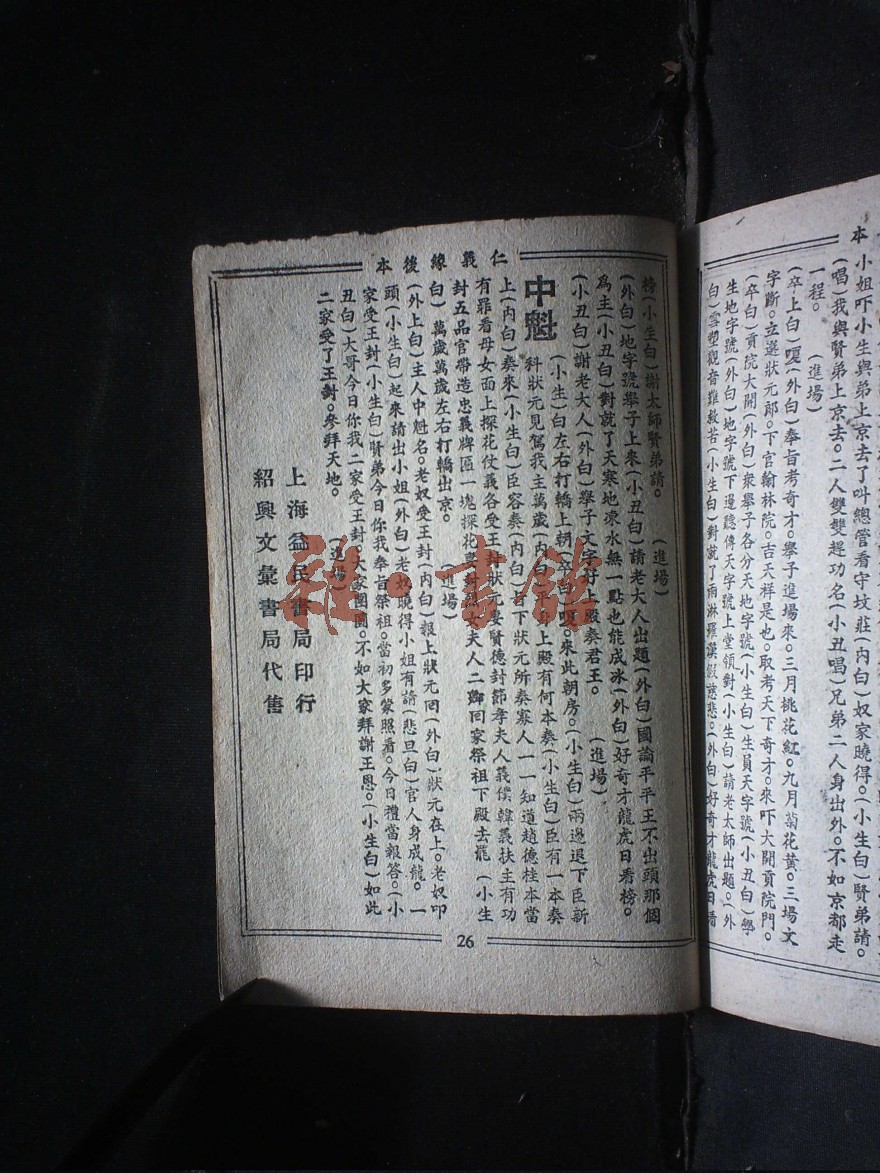 本
小姐吓小生與弟上京去了叫總管看守坟莊(內白)奴家曉得。(小生白)賢弟請。
(唱)我與賢弟上京去。二人雙雙趕功名(小丑唱)兄弟二人身出外。不如京都走
一程。(進場)
(卒上白)嗄(外白)奉旨考奇才。舉子進場來。三月桃花紅。九月菊花黃。三場文
字斷。立選狀元郎。下官翰林院。吉天祥是也。取考天下奇才。來吓大開貢院門。
(卒白)貢院大開(外白)衆舉子各分天地字號(小生白)生員天字號(小丑白)學
生地字號(外白)地字號下邊聽傳天字號上堂領對(小生白)請老太師出題。(外
白)雪塑觀音難救苦(小生白)對就了雨淋羅漢假慈悲。(外白)好奇才龍虎日看
仁義緣後本
榜(小生白)謝太師賢弟請。(進場)
(外白)地字號舉子上來(小丑白)請老大人出題(外白)國論平平王不出頭那個
為主(小丑白)對就了天寒地凍水無一點也能成冰(外白)好奇才龍虎日看榜。
(小丑白)謝老大人(外白)舉子文字好上殿奏君王。(進場)
中魁
(小生)白左右打轎上朝(卒白)嗄。來此朝房。(小生白)兩邊退下臣新
科狀元見駕我主萬歲(內白)平身上殿有何本奏(小生白)臣有一本奏
上(內白)奏來(小生白)臣容奏(內白)皆下狀元所奏寡人一一知道趙德桂本當
有罪看母女面上探花仗義各受王封狀元妻賢德封節孝夫人義僕韓義扶主有功
封五品官帶造忠義牌匾一塊探花妻封烈女夫人二卿回家祭祖下殿去罷(小生
白)萬歲萬歲左右打轎出京。(進場)
(外上白)主人中魁名。老奴受王封(內白)報上狀元回(外白)狀元在上。老奴叩
頭(小生白)起來請出小姐(外白)老奴曉得小姐有請(悲旦白)官人身成龍。一
家受王封(小生白)賢弟今日你我奉旨祭祖。當初多蒙照看。今日禮當報答。(小
丑白)大哥今日你我二家受王封。大家團圓。不如大家拜謝王恩。(小生白)如此
二家受了王封。參拜天地。(進場)
上海益民書局印行
紹興文彙書局代售
26